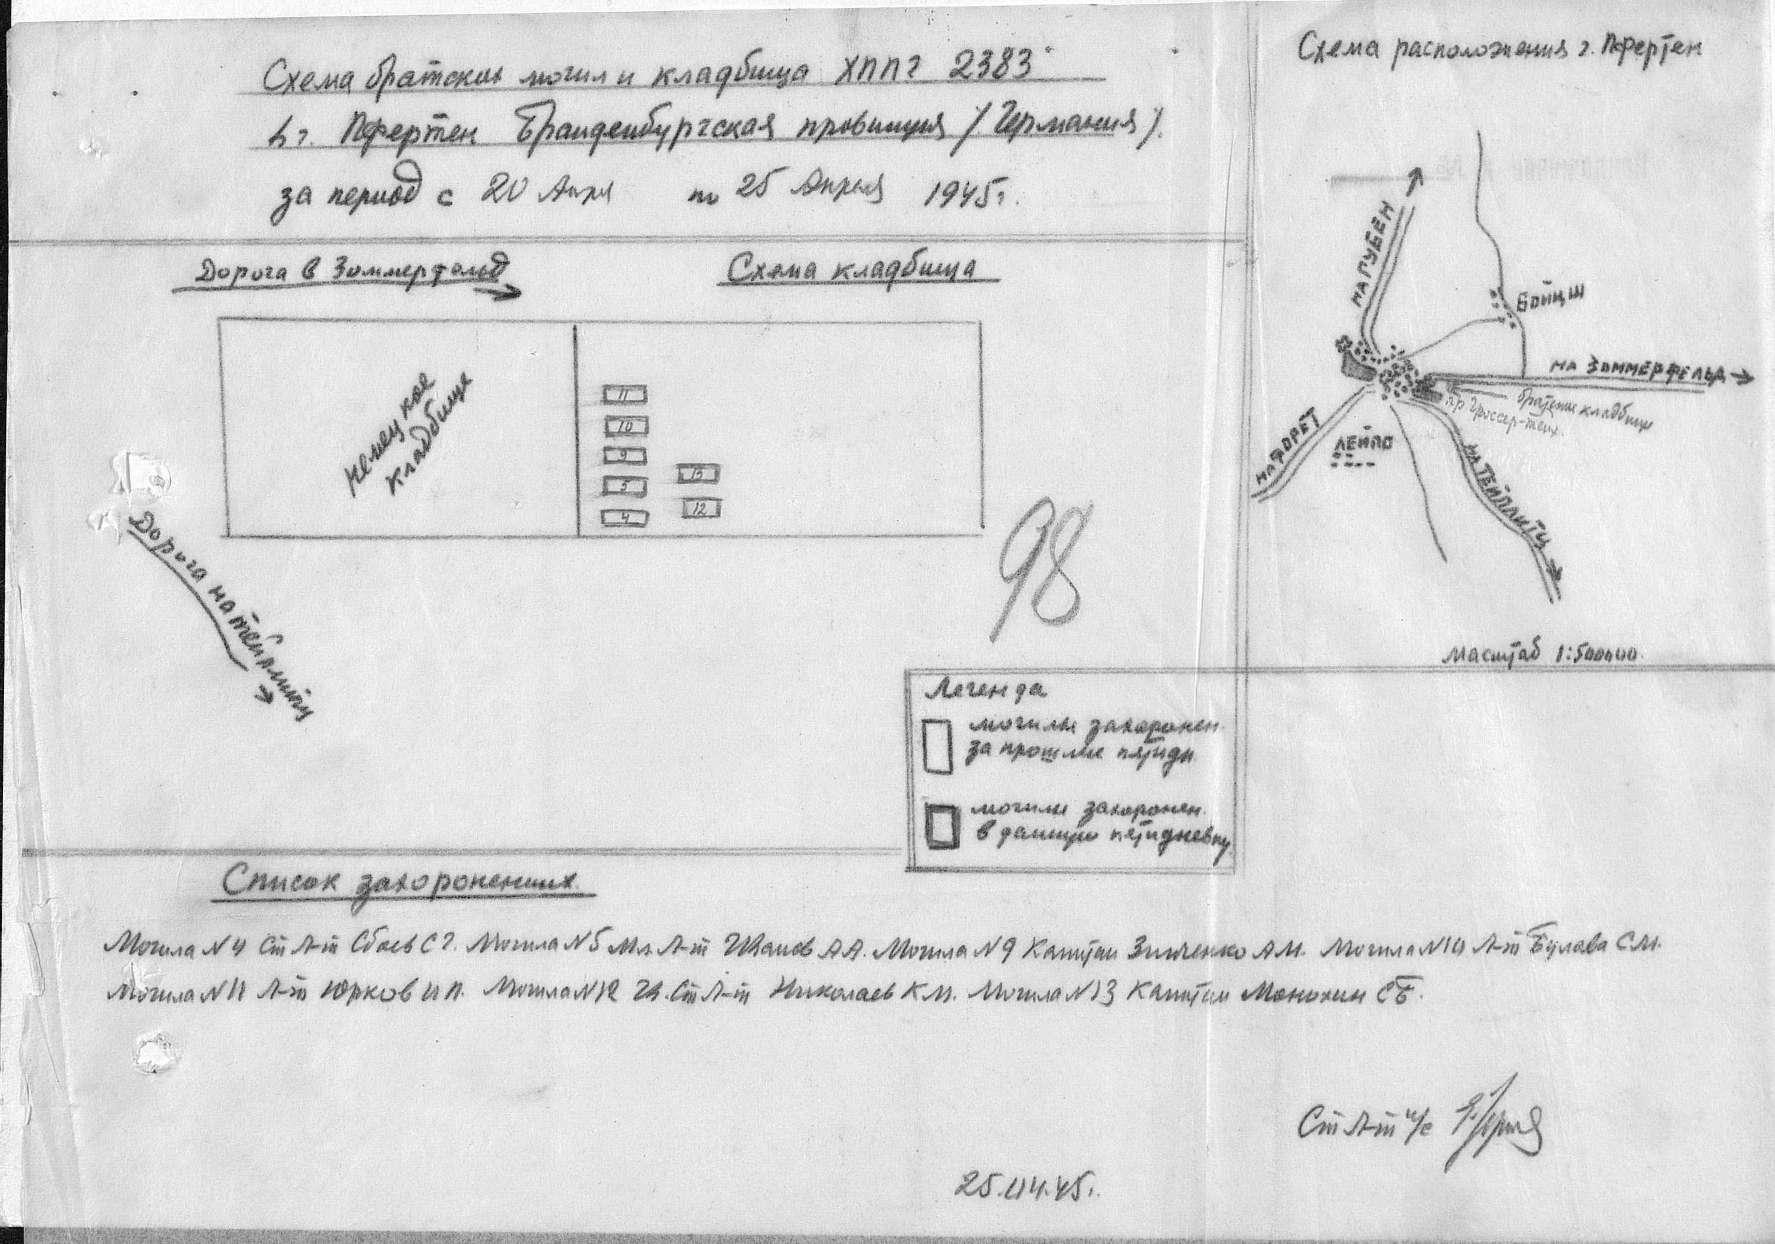 Схема братских могил и кладбища ХППГ 2383
в г. Пфертен Бранденбургская провинция /Германия/.
за период с 20 Апря по 25 Апреля 1945г.
Схема расположения г. Пфертен
Дорога в Зоммерфельд
Схема кладбища
Немецкое
кладбище
11
10
9
5
4
13
12
Дорога на тейплитц
98
НА ГУБЕН
БОЙЦШ
НА ЗОММЕРФЕЛЬД
братские кладбище
НА ФОРЕТ
ЛЕЙПО
НА ТЕЙПЛИТЦ
Масштаб 1:500000.
Легенда
могилы захоронен.
за прошлые пятидн
могилы захоронен.
в данную пятидневку
Список захороненных.
Могила N4 Ст Л-т Сбоев С Г. Могила N5 Мл. Л-т Ивашев А А. Могила N9 Капитан Зинченко А М. Могила N10 Л-т Булава С М.
Могила N11 Л-т Юрков И П. Могила N12 Ст Л-т Николаев К М. Могила N13 Капитан Монохин С Б.
Ст Л-т и/с
25.04.45г.